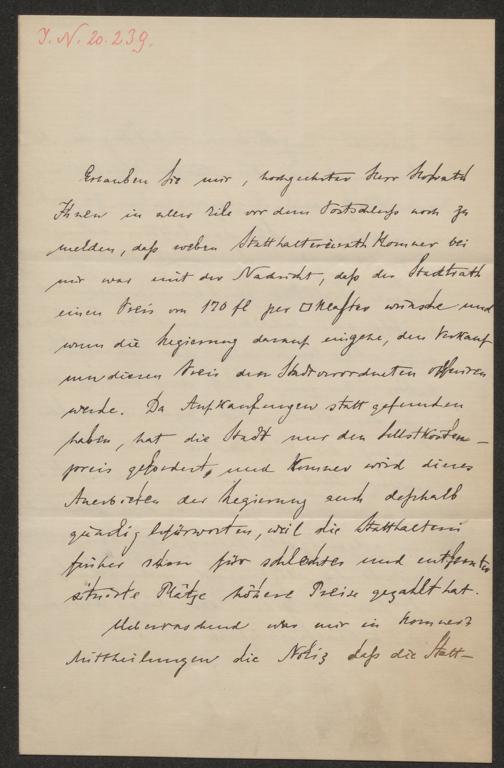 J. N. 20.239.
Erlauben Sie mir, hochgeehrter Herr Hofrath
Ihnen in aller Eile vor dem Postschluß noch zu
melden, daß soeben Statthaltereirath Kommer bei
mir war mit der Nachricht, daß der Stadtrath
einen Preis von 170 fl per □Klafter wünsche und
wenn die Regierung darauf eingehe, den Verkauf
um diesen Preis den Stadtverordneten
werde. Da Aufkaufungen statt gefunden
haben, hat die Stadt nur den Selbstkosten-
preis gefordert, und Kommer wird dieses
Anerbieten der Regierung auch deßhalb
günstig befürworten, weil die Statthalterei
früher schon für schlechter und entfernter
situirte Plätze höhere Preise gezahlt hat.
Ueberraschend war mir in Kommers
Mittheilungen die Notiz daß die Statt-